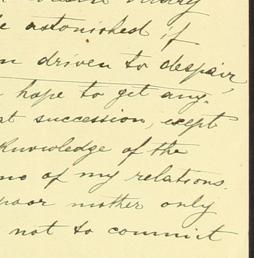 astonished if
driven to despair,
hope to get any-
succession, exept
Knowledge of the
of my relations.
poor mother only
not to commit